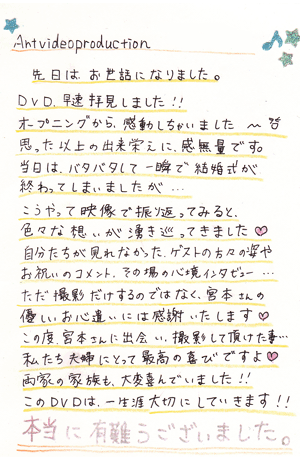 Antvideoproduction
先日は、お世話になりました。
DVD、早速拝見しました!!
オープニングから、感動しちゃいました 〜
思った以上の出来栄えに、感無量です。
当日は、バタバタして一瞬で結婚式が
終わってしまいましたが…
こうやって映像で振り返ってみると、
色々な想いが湧き巡ってきました♥
自分たちが見れなかった、ゲストの方々の姿や
お祝いのコメント、その場の心境インタビュー…
ただ撮影だけするのではなく、宮本さんの
優しいお心遣いには感謝いたします♥
この度、宮本さんに出会い、撮影して頂けた事…
私たち夫婦にとって最高の喜びですよ♥
両家の家族も、大変喜んでいました!!
このDVDは、一生涯大切にしていきます!!
本当に有難うございました。